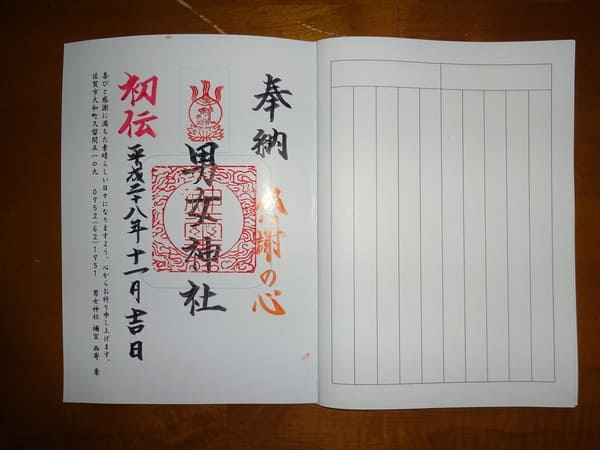 奉納 感謝の心
男女神社
初伝
平成二十八年十一月吉日
喜びと感謝に満ちた素晴らしい日々になりますよう、心からお祈り申し上げます。
佐賀市大和町久留間五一〇九 0952(62)1951 男女神社 禰宜